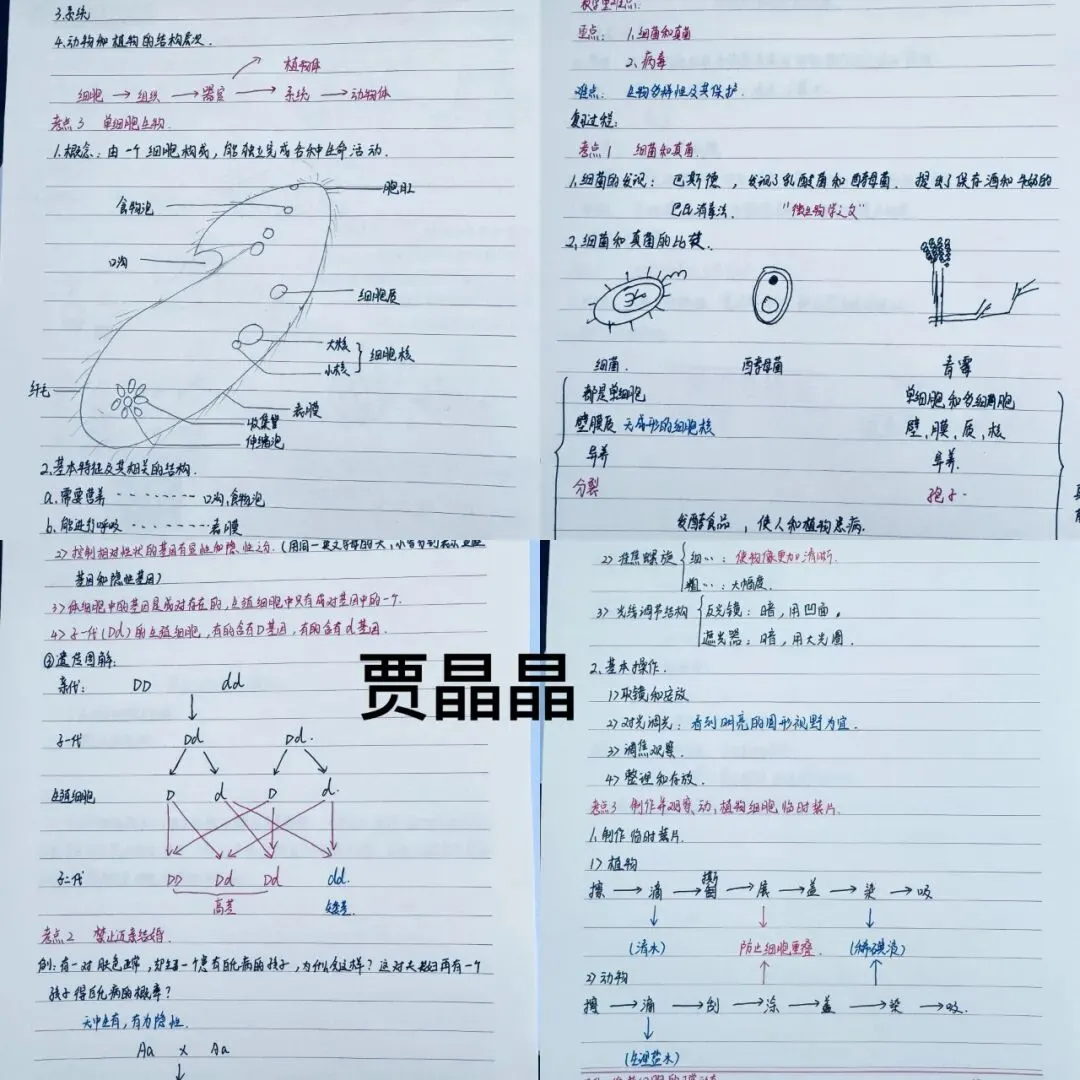 3.系统
4.动物和植物的结构层次.
植物体
细胞 → 组织 → 器官 → 系统 → 动物体
考点3 单细胞生物.
1.概念：由一个细胞构成，能独立完成各种生命活动.
胞肛
食物泡
口沟
细胞质
大核
小核
细胞核
纤毛
表膜
收集管
伸缩泡
2.基本特征及其相关的结构.
a.需要营养 -------- 口沟,食物泡
b.能进行呼吸 ------- 表膜
重点： 1.细菌和真菌
2.病毒
难点： 生物多样性及其保护.
复习过程：
考点1 细菌和真菌.
1.细菌的发现：巴斯德，发现了乳酸菌和酵母菌. 提出了保存酒和牛奶的
巴氏消毒法. "微生物学之父"
2.细菌和真菌的比较.
细菌. 酵母菌 青霉
都是单细胞 单细胞和多细胞
壁膜质 无成形的细胞核 壁,膜,质,核
异养 异养.
分裂 孢子.
发酵食品，使人和植物患病.
2>控制相对性状的基因有显性和隐性之分.(用同一英文字母的大,小写分别表示显性
基因和隐性基因)
3>体细胞中的基因是成对存在的,生殖细胞中只有成对基因中的一个.
4>子一代(Dd)的生殖细胞,有的含有D基因,有的含有d基因.
③遗传图解:
亲代: DD dd
子一代 Dd Dd.
生殖细胞 D d D d.
子二代 DD Dd Dd dd.
高茎 矮茎.
考点2 禁止近亲结婚.
例:有一对肤色正常,却生了一个患有白化病的孩子,为什么会这样? 这对夫妇再有一个
孩子得白化病的概率?
无中生有,有为隐性.
Aa × Aa
贾晶晶
2>准焦螺旋 细…: 使物像更加清晰.
粗…: 大幅度.
3>光线调节结构 反光镜: 暗,用凹面.
遮光器: 暗,用大光圈.
2.基本操作.
1>取镜和安放
2>对光调光: 看到明亮的圆形视野为宜.
3>调焦观察.
4>整理和存放.
考点3 制作并观察动,植物细胞临时装片.
1.制作临时装片.
1>植物
撕
擦 → 滴 → 刮 → 展 → 盖 → 染 → 吸
(清水) 防止细胞重叠 (稀碘液)
2>动物
擦 → 滴 → 刮 → 涂 → 盖 → 染 → 吸.
(生理盐水)